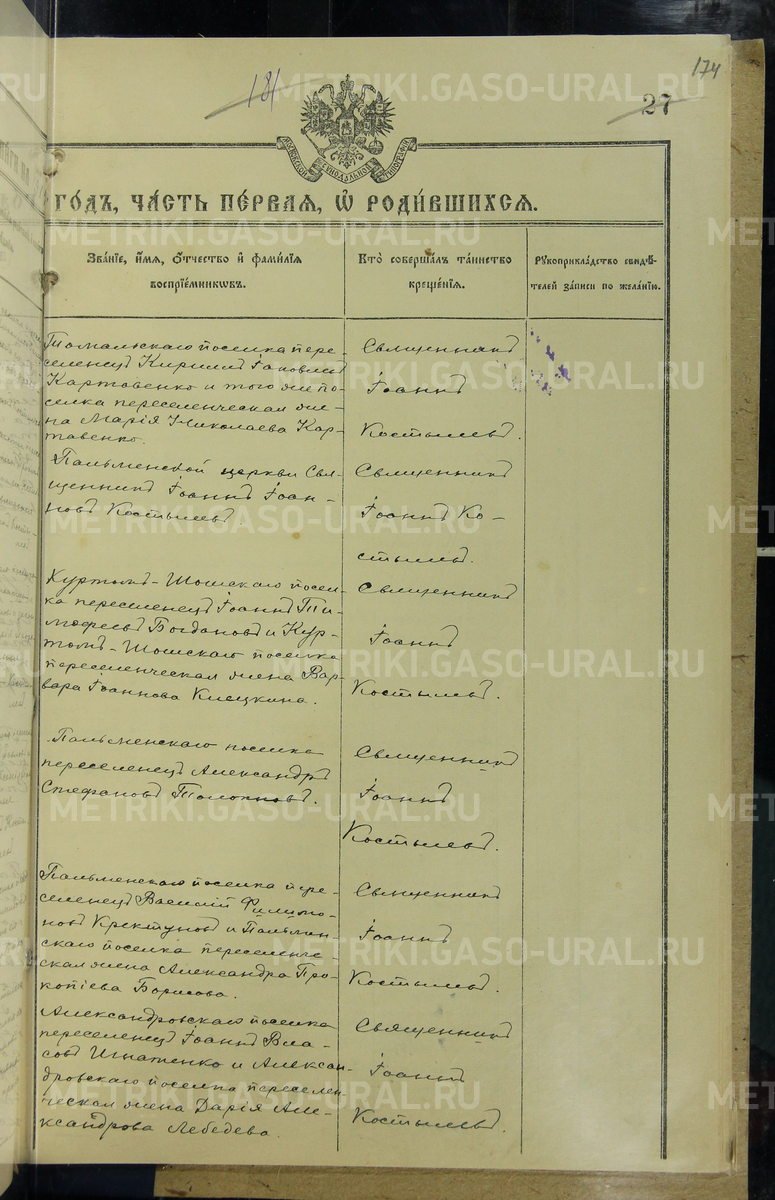 174
181
27
МОСКОВСКОЙ СѴНОДАЛЬНОЙ ТИПОГРАФІИ
ГО́ДЪ, ЧА́СТЬ ПЕ́РВАЯ, Ѡ҆ РОДИ́ВШИХСЯ.
Зва́нїе, и҆́мя, ѻ҆́тчество и҆ фами́лїя
воспрїе́мникѡвъ.
Кто̀ соверша́лъ та́инство
креще́нїя.
Рꙋкоприкла́дство свидѣ́-
телей за́писи по жела́нїю.
поселка пере-
селенецъ Кириллъ Іаковлевъ
Картавенко и того же по-
селка переселенческая же-
на Марія Николаева Кар-
тавенко.
Священникъ
Іоаннъ
Костылевъ.
Пальменской церкви Свя-
щенникъ Іоаннъ Іоан-
новъ Костылевъ
Священникъ
Іоаннъ Ко-
стылевъ.
поселка переселенецъ Іоаннъ Ти-
мофеевъ Богдановъ и Кур-
поселка
переселенческая жена Вар-
вара Іоаннова Клецкина.
Священникъ
Іоаннъ
Костылевъ.
Пальменскаго поселка
переселенецъ Александръ
Стефановъ Толокновъ.
Священникъ
Іоаннъ
Костылевъ.
Пальменскаго поселка пере-
селенецъ Василій Филимо-
новъ Кректуновъ и Пальмен-
скаго поселка переселенче-
ская жена Александра Про-
копіева Борисова.
Священникъ
Іоаннъ
Костылевъ.
Александровскаго поселка
переселенецъ Іоаннъ Вла-
совъ Игнатенко и Алексан-
дровскаго поселка переселен-
ческая жена Дарія Але-
ксандрова Лебедева.
Священникъ
Іоаннъ
Костылевъ.
METRIKI.GASO-URAL.RU